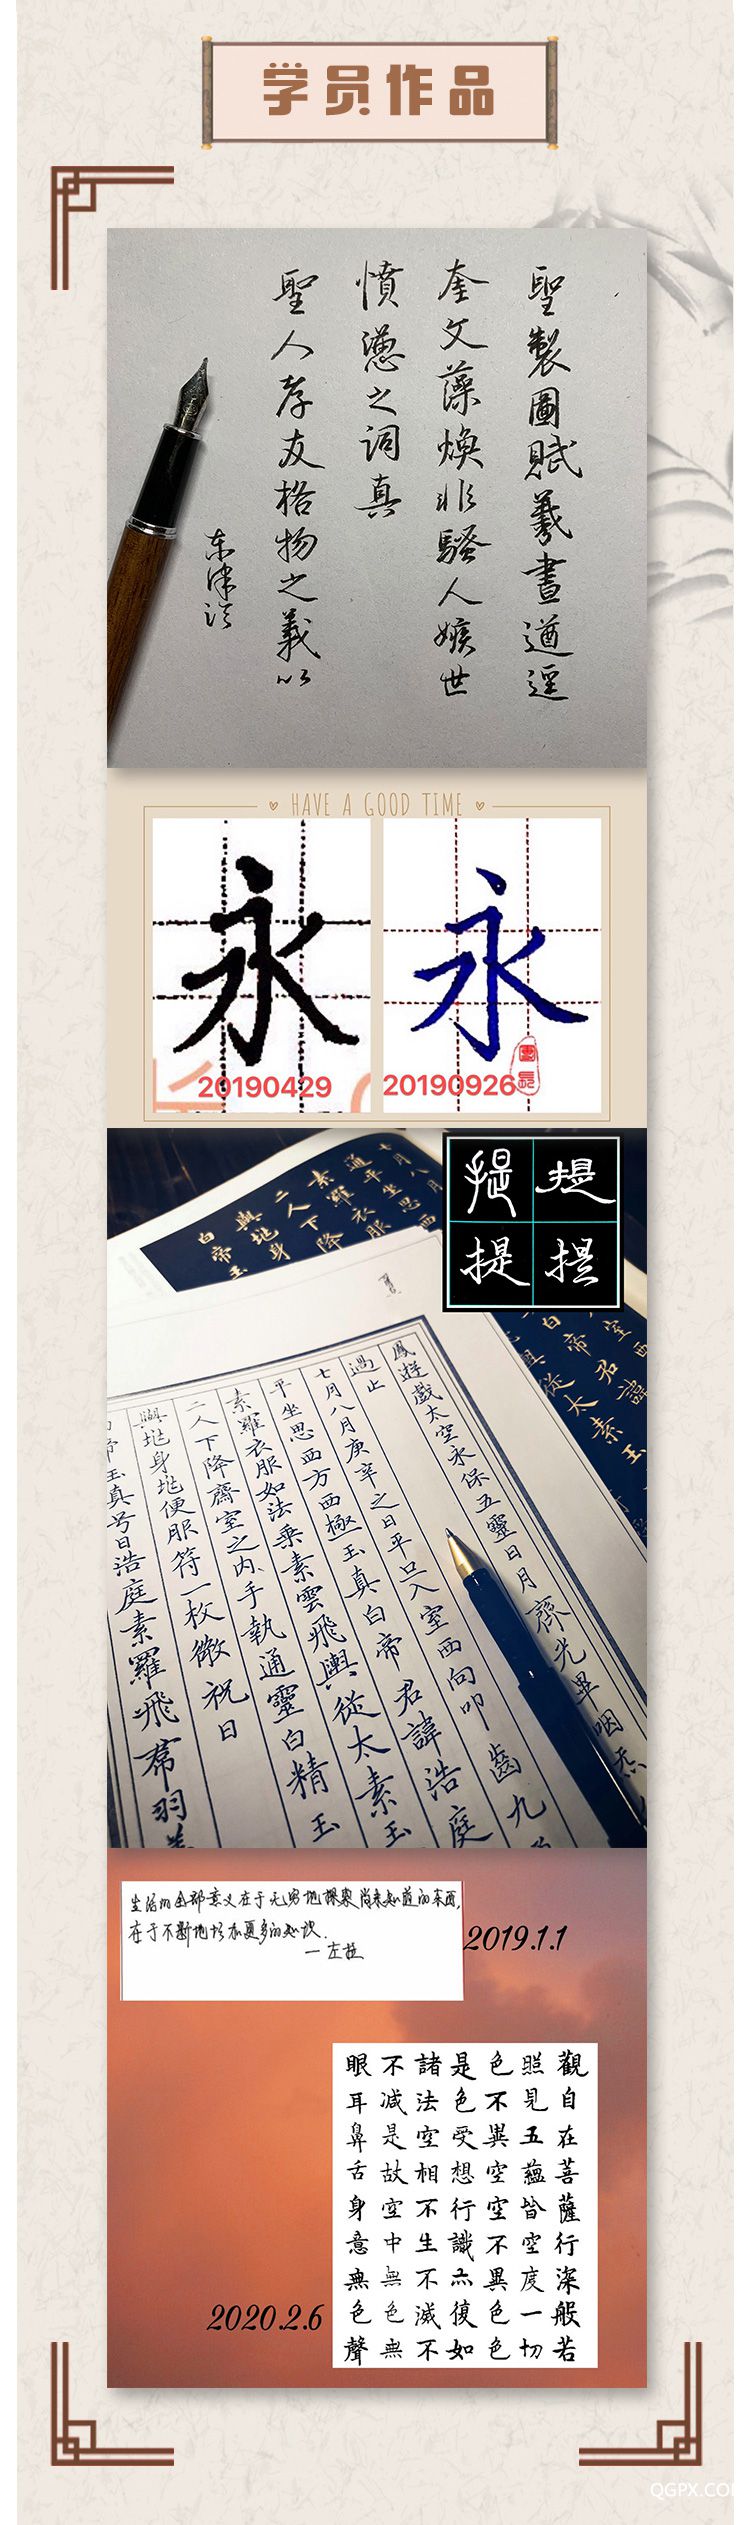 学员作品
聖製圖賦羲畫遒逕
奎文藻煥非騷人嫉世
憤懣之词真
聖人孝友格物之義以
HAVE A GOOD TIME
20190429
永
20190926
永
提提
提提
七月八月
通平坐思西
素羅衣服
二人下降
與地身
白帝玉
鳳遊戲太空永保五靈日月齊光畢咽炁
過止
七月八月庚辛之日平旦入室西向叩齒九
平坐思西方西極玉真白帝君諱浩庭
素羅衣服如法乘素雲飛輿從太素玉
二人下降齋室之内手執通靈白精玉
與地身地便服符一枚微祝曰
帝玉真号曰浩庭素羅飛霈羽
生活的全部意义在于无穷地探索尚未知道的东西,
在于不断地增加更多的知识.
—左拉
2019.1.1
觀自在菩薩行深般若
照見五蘊皆空度一切
色不異空空不異色色
是色受想行識亦復如
諸法空相不生不滅不
不减是故空中無色無
眼耳鼻舌身意無色聲
2020.2.6